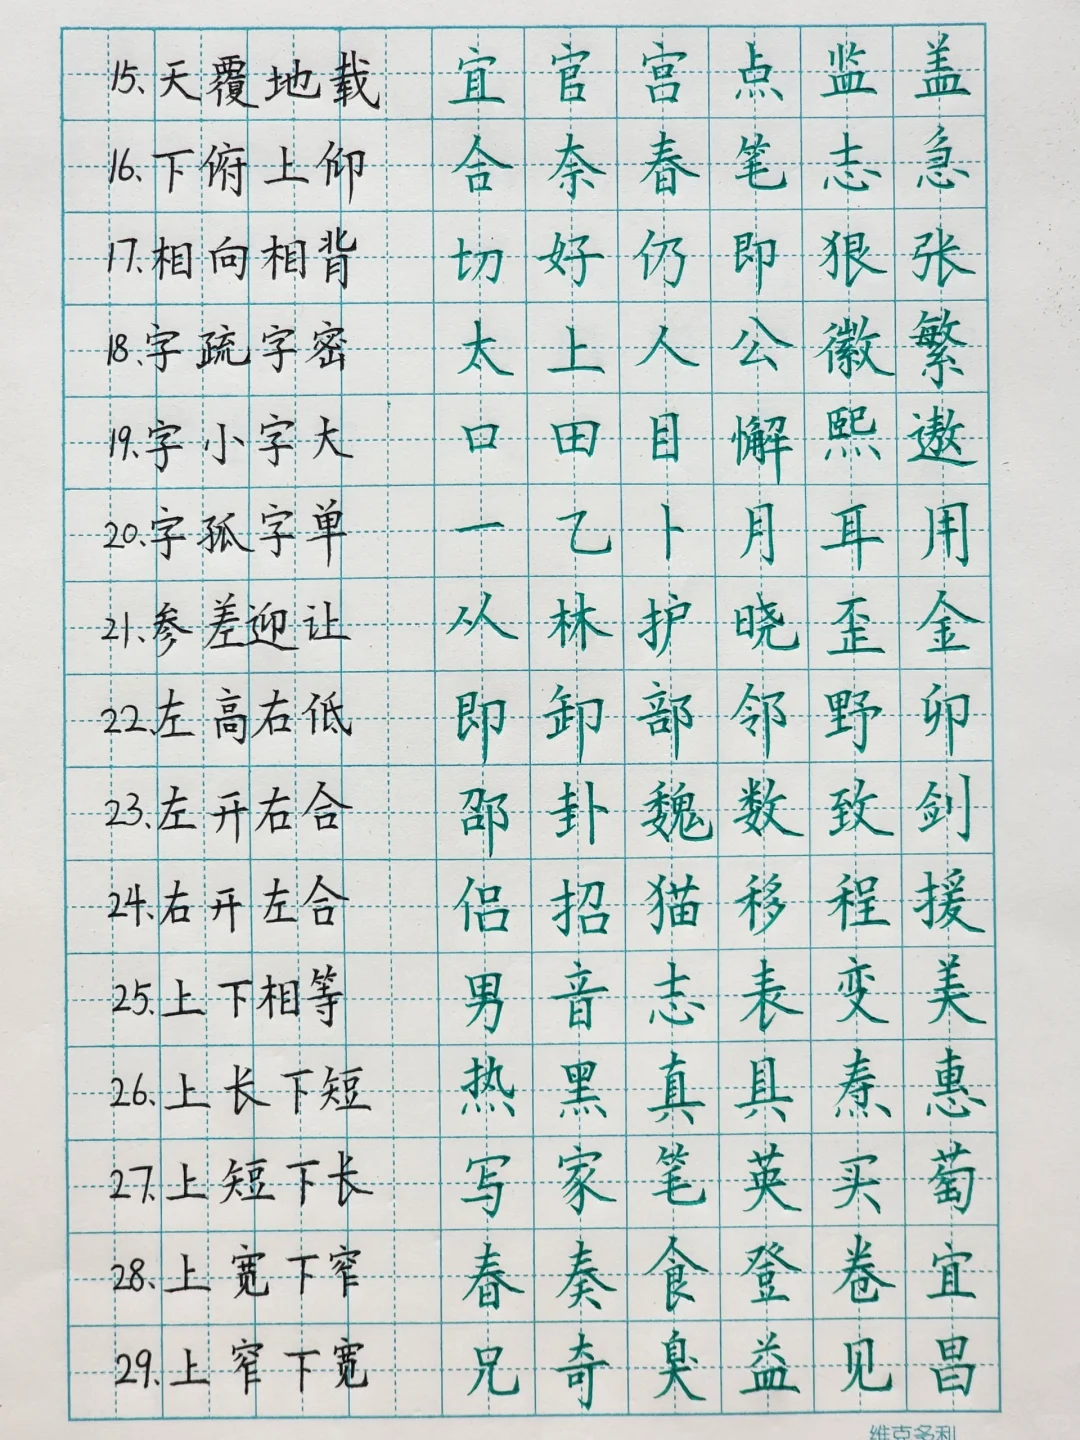 15、天覆地载 宜 官 宫 点 监 盖
16、下俯上仰 舍 奈 春 笔 志 急
17、相向相背 切 好 仍 即 狠 张
18、字疏字密 太 上 人 公 徽 繁
19、字小字大 口 田 目 懈 熙 遨
20、字孤字单 一 乙 卜 月 耳 用
21、参差迎让 从 林 护 晓 歪 金
22、左高右低 即 卸 部 邻 野 卯
23、左开右合 邵 卦 魏 数 致 剑
24、右开左合 侣 招 猫 移 程 援
25、上下相等 男 音 志 表 变 美
26、上长下短 热 黑 真 具 焘 惠
27、上短下长 写 家 笔 英 买 萄
28、上宽下窄 春 奏 食 登 卷 宜
29、上窄下宽 兄 奇 臭 益 见 昌
维克多利